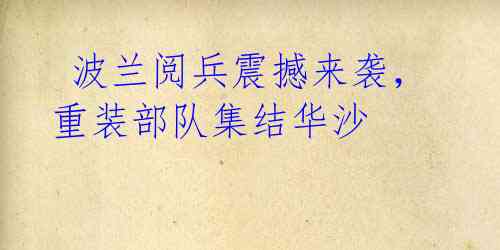 波兰阅兵震撼来袭，
重装部队集结华沙